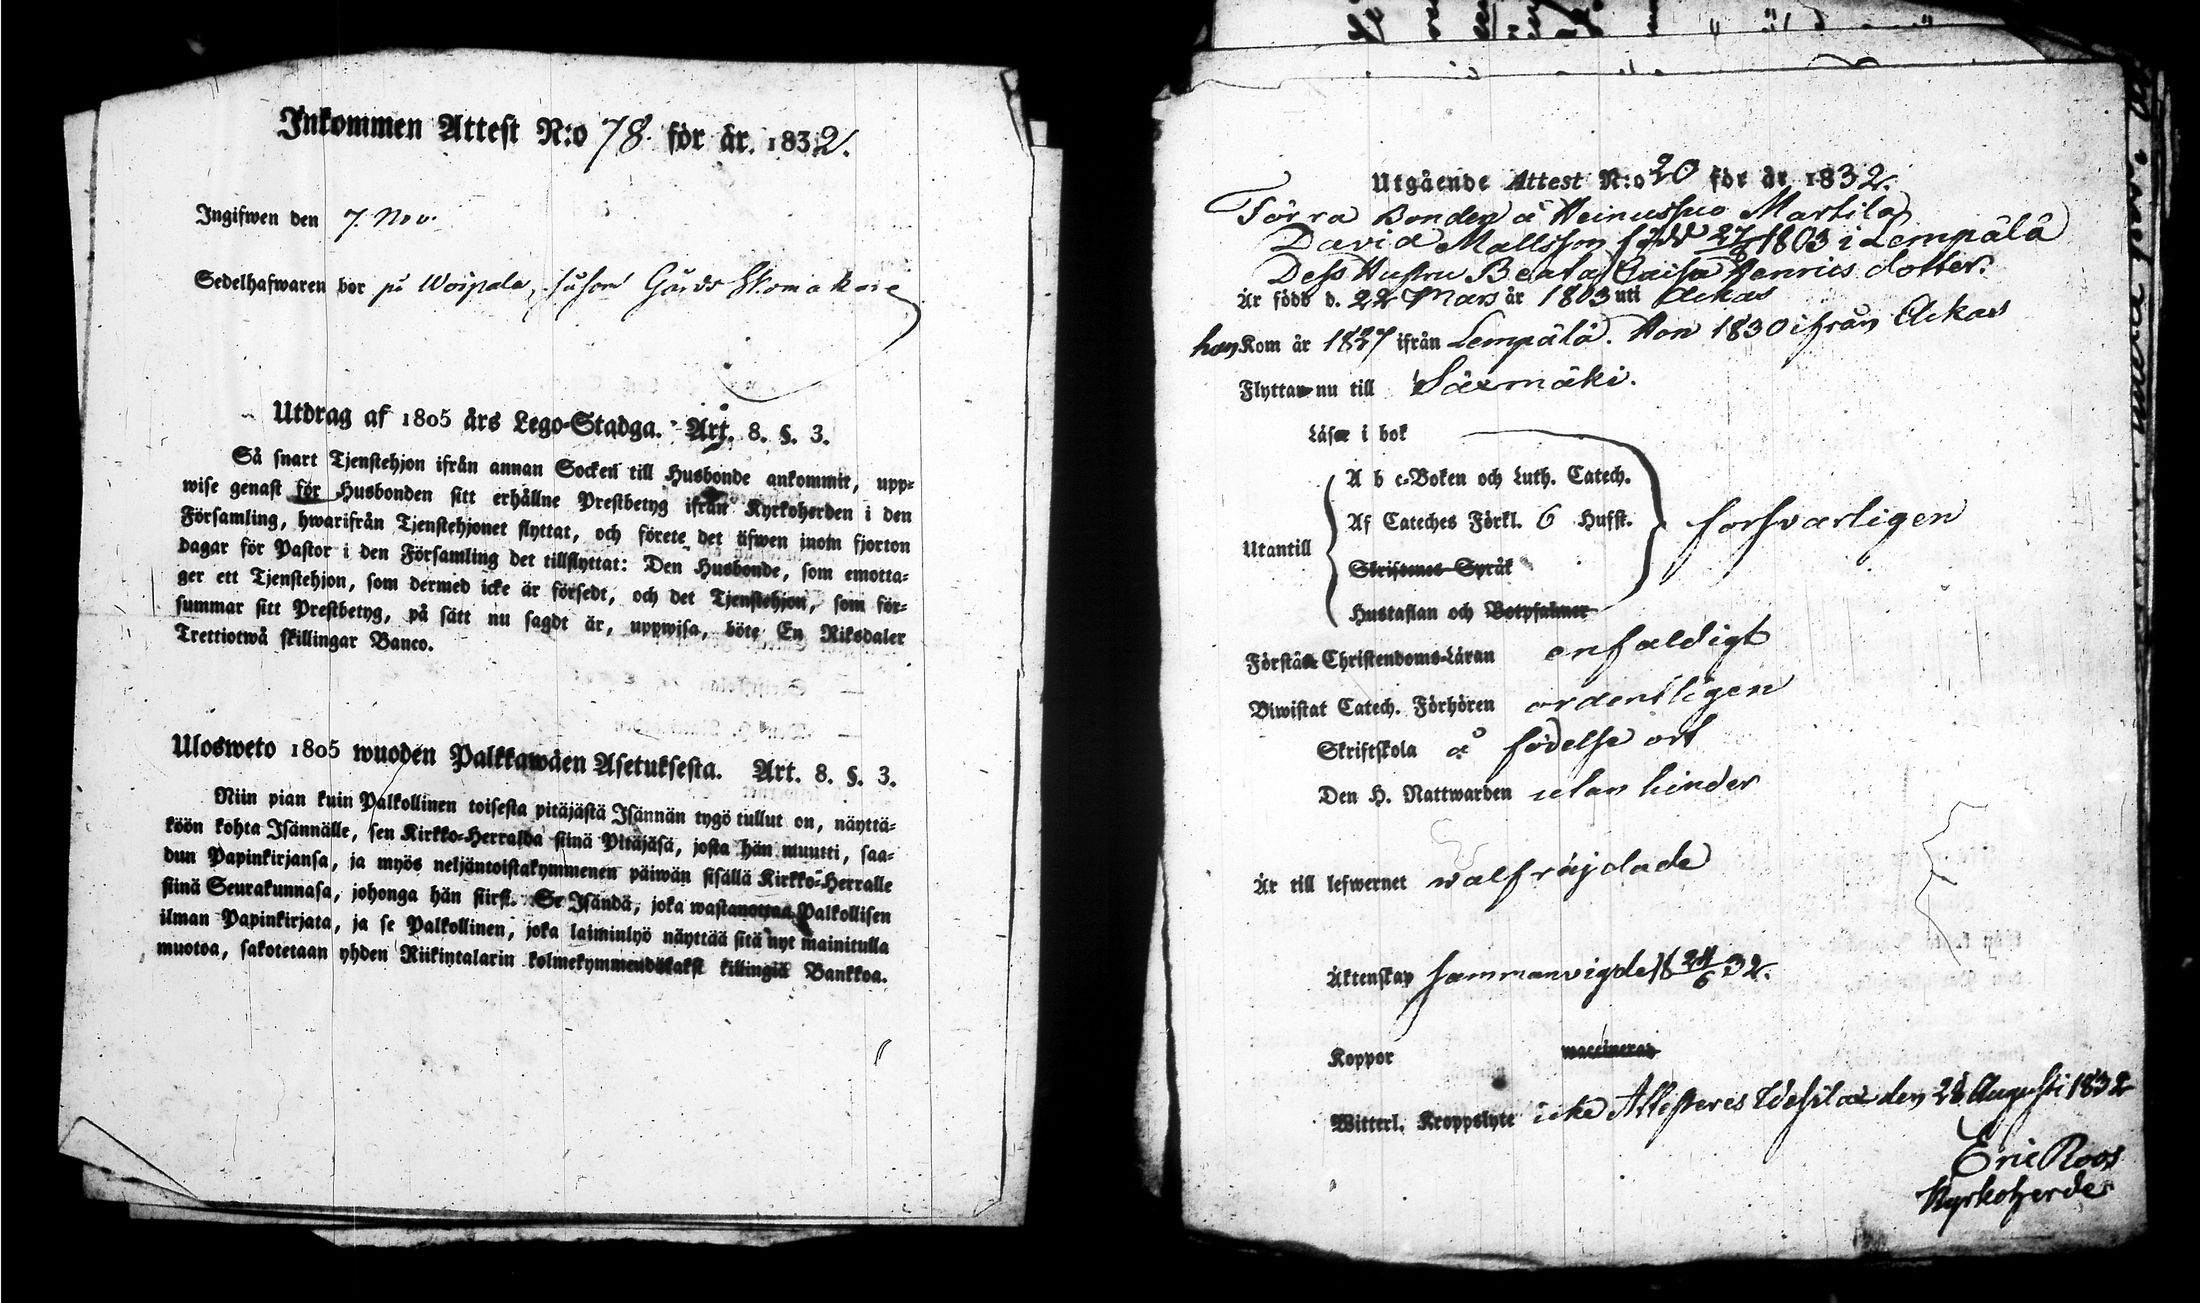 Inkommen Attest N:o 78. för år. 1832.
Ingifwen den 7. Nov.
Sedelhafwaren bor på Woipala, såsom Gårds Skomakare
Utdrag af 1805 års Lego-Stadga. Art. 8. §. 3.
Så snart Tjenstehjon ifrån annan Socken till Husbonde ankommit, upp-
wise genast för Husbonden sitt erhållne Prestbetyg ifrån Kyrkoherden i den
Församling, hwarifrån Tjenstehjonet flyttat, och förete det äfwen inom fjorton
dagar för Pastor i den Församling det tillflyttat: Den Husbonde, som emotta-
ger ett Tjenstehjon, som dermed icke är försedt, och det Tjenstehjon, som för-
summar sitt Prestbetyg, på sätt nu sagdt är, uppwisa, böte En Riksdaler
Trettiotwå skillingar Banco.
Ulosweto 1805 wuoden Palkkawäen Asetuksesta. Art. 8. §. 3.
Niin pian kuin Palkollinen toisesta pitäjästä Isännän tygö tullut on, näyttä-
köön kohta Isännälle, sen Kirkko-Herralda siinä Pitäjäsä, josta hän muutti, saa-
dun Papinkirjansa, ja myös neljäntoistakymmenen päiwän sisällä Kirkko-Herralle
siinä Seurakunnasa, johonga hän siirsi. Se Isändä, joka wastanottaa Palkollisen
ilman Papinkirjata, ja se Palkollinen, joka laiminlyö näyttää sitä nyt mainitulla
muotoa, sakotetaan yhden Riikintalarin kolmekymmendäkaksi killingiä Bankkoa.
Utgående Attest N:o 20 för år 1832.
Förra Bonden å Heinusuo Martila
David Mattsson född 27/8 1803 i Lempälä
Dess Hustru Beata Caisa Henrics dotter.
Är född d. 22 Mars år 1803 uti Ackas
han Kom år 1827 ifrån Lempälä. Hon 1830 ifrån Ackas
Flyttar nu till Säxmäki.
Läser i bok
A b c-Boken och Luth. Catech.
Af Cateches Förkl. 6 Hufst. försvarligen
Utantill
Skriftenes Språk
Hustaflan och Botpsalmer
Förstår Christendoms-Läran enfaldigt
Biwistat Catech. Förhören ordentligen
Skriftskola å födelse ort
Den H. Nattwarden utan hinder
Är till lefwernet walfräjdade
Äktenskap sammanvigde d 24/6 32.
Koppor waccineras
Witterl. Kroppslyte icke Attesteres Wesilax den 28 Augusti 1832
Eric Roos
Kyrkoherde